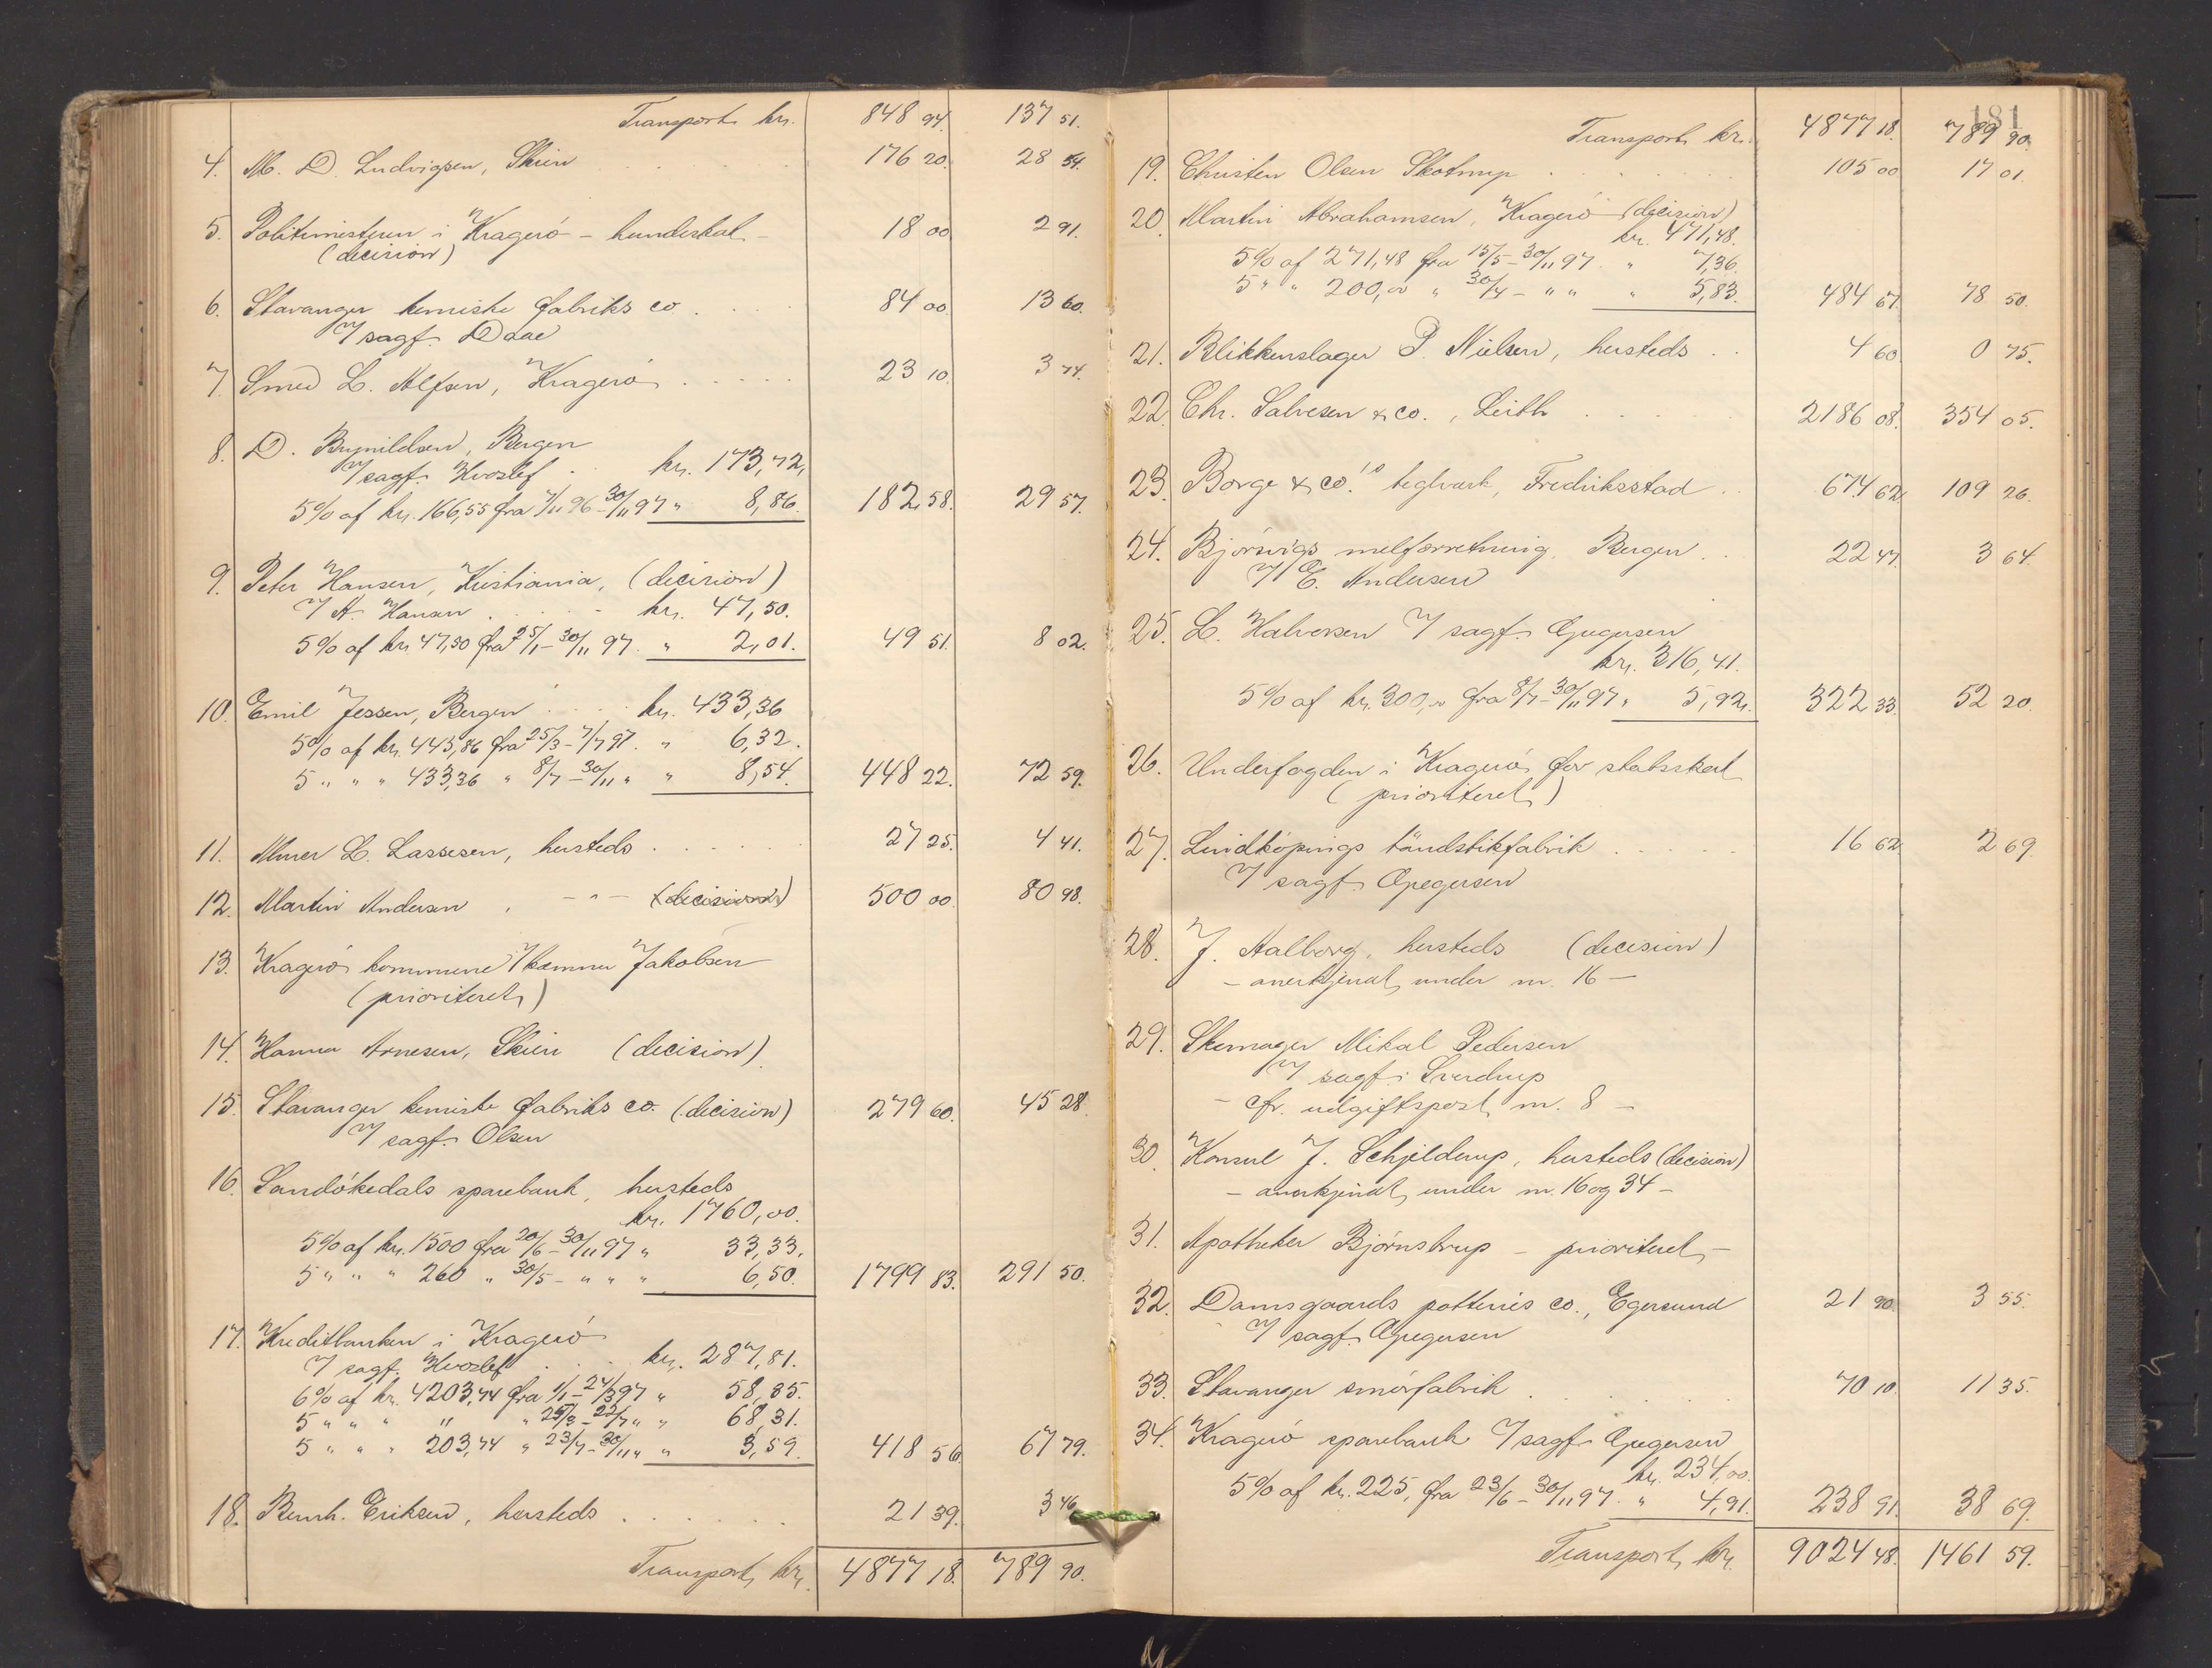 Transport kr. 848 94. 137 51.
4. M. D. Ludvigsen, Skien . . . 176 20. 28 54.
5. Politimesteren i Kragerö – hundeskat – 18 00 2 91.
(decision)
6. Stavanger kemiske fabriks co . . . 84 00. 13 60.
v/ sagf. Daae
7. Smed L. Alfsen, Kragerö . . . . . 23 10. 3 74.
8. D. Brynildsen, Bergen
v/ sagf. Hvoslef . . kr. 173,72,
5% af kr. 166,55 fra 7/11 96 – 30/11 97 " 8,86. 182,58. 29 57.
9. Peter Hansen, Kristiania, (decision)
v/ A. Hansen . . . . kr. 47,50.
5% af kr. 47,50 fra 25/1 – 30/11 97. " 2,01. 49 51. 8 02.
10. Emil Jessen, Bergen . . . . kr. 433,36
5% af kr. 443,86 fra 25/3 – 7/7 97. " 6,32.
5 " " " 433,36 " 8/7 – 30/11 " " 8,54. 448 22. 72 59.
11. Murer L. Lassesen, hersteds . . . . . . 27 25. 4 41.
12. Martin Andersen , – " – (decision) 500 00. 80 98.
13. Kragerö kommune v/ kæmner Jakobsen
(prioriteret)
14. Hanna Arnesen, Skien (decision)
15. Stavanger kemiske fabriks co. (decision) 279 60. 45 28.
v/ sagf. Olsen
16. Sandökedals sparebank, hersteds
kr. 1760,00.
5% af kr. 1500 fra 20/6 – 30/11 97 " 33,33.
5 " " " 260 " 30/5 – " " " 6,50. 1799 83. 291 50.
17. Kreditbanken i Kragerö
v/ sagf. Hvoslef . . . kr. 287,81.
6% af kr. 4203,74 fra 1/1 – 24/3 97 " 58,85.
5 " " " " " 25/3 – 22/7 " " 68,31.
5 " " " 203,74 " 23/7 – 30/11 " " 3,59. 418 56. 67 79.
18. Bernh. Eriksen, hersteds . . . . . . 21 39. 3 46
Transport kr. 4877 18. 789 90.
181
Transport kr. 4877 18. 789 90.
19. Christen Olsen Skotrup . . . . . . 105 00 17 01.
20. Martin Abrahamsen, Kragerö (decision)
kr. 471,48.
5% af 271,48 fra 15/5 – 30/11 97. " 7,36.
5 " " 200,00 " 30/4 – " " " 5,83. 484 67. 78 50.
21. Blikkenslager P. Nielsen, hersteds . . 4 60. 0 75.
22. Chr. Salvesen & co., Leith . . . . 2186 08. 354 05.
23. Borge & co.'s teglværk, Fredriksstad . . 674 62. 109 26.
24. Björsvigs melforretning, Bergen . . 22 47. 3 64.
v/ E. Andersen
25. L. Halvorsen v/ sagf. Gregersen
kr. 316,41.
5% af kr. 300,00 fra 8/7 – 30/11 97 " 5,92. 322 33. 52 20.
26. Underfogden i Kragerö for statsskat
(prioriteret)
27. Lindköpings tändstikfabrik . . . . . 16 62 2 69.
v/ sagf. Gregersen
28. J. Aalborg, hersteds (decision)
– anerkjendt under nr. 16 –
29. Skomager Mikal Pedersen
v/ sagf. Sverdrup
– cfr. udgiftspost nr. 8 –
30. Konsul J. Schjelderup, hersteds (decision)
– anerkjendt under nr. 16 og 34 –
31. Apotheker Björnstrup – prioriteret –
32. Damsgaards potteries co., Egersund 21 90. 3 55.
v/ sagf. Gregersen
33. Stavanger smörfabrik . . . . . 70 10. 11 35.
34. Kragerö sparebank v/ sagf. Gregersen
kr. 234,00.
5% af kr. 225, fra 23/6 – 30/11 97. " 4,91. 238 91. 38 69.
Transport kr. 9024 48. 1461 59.